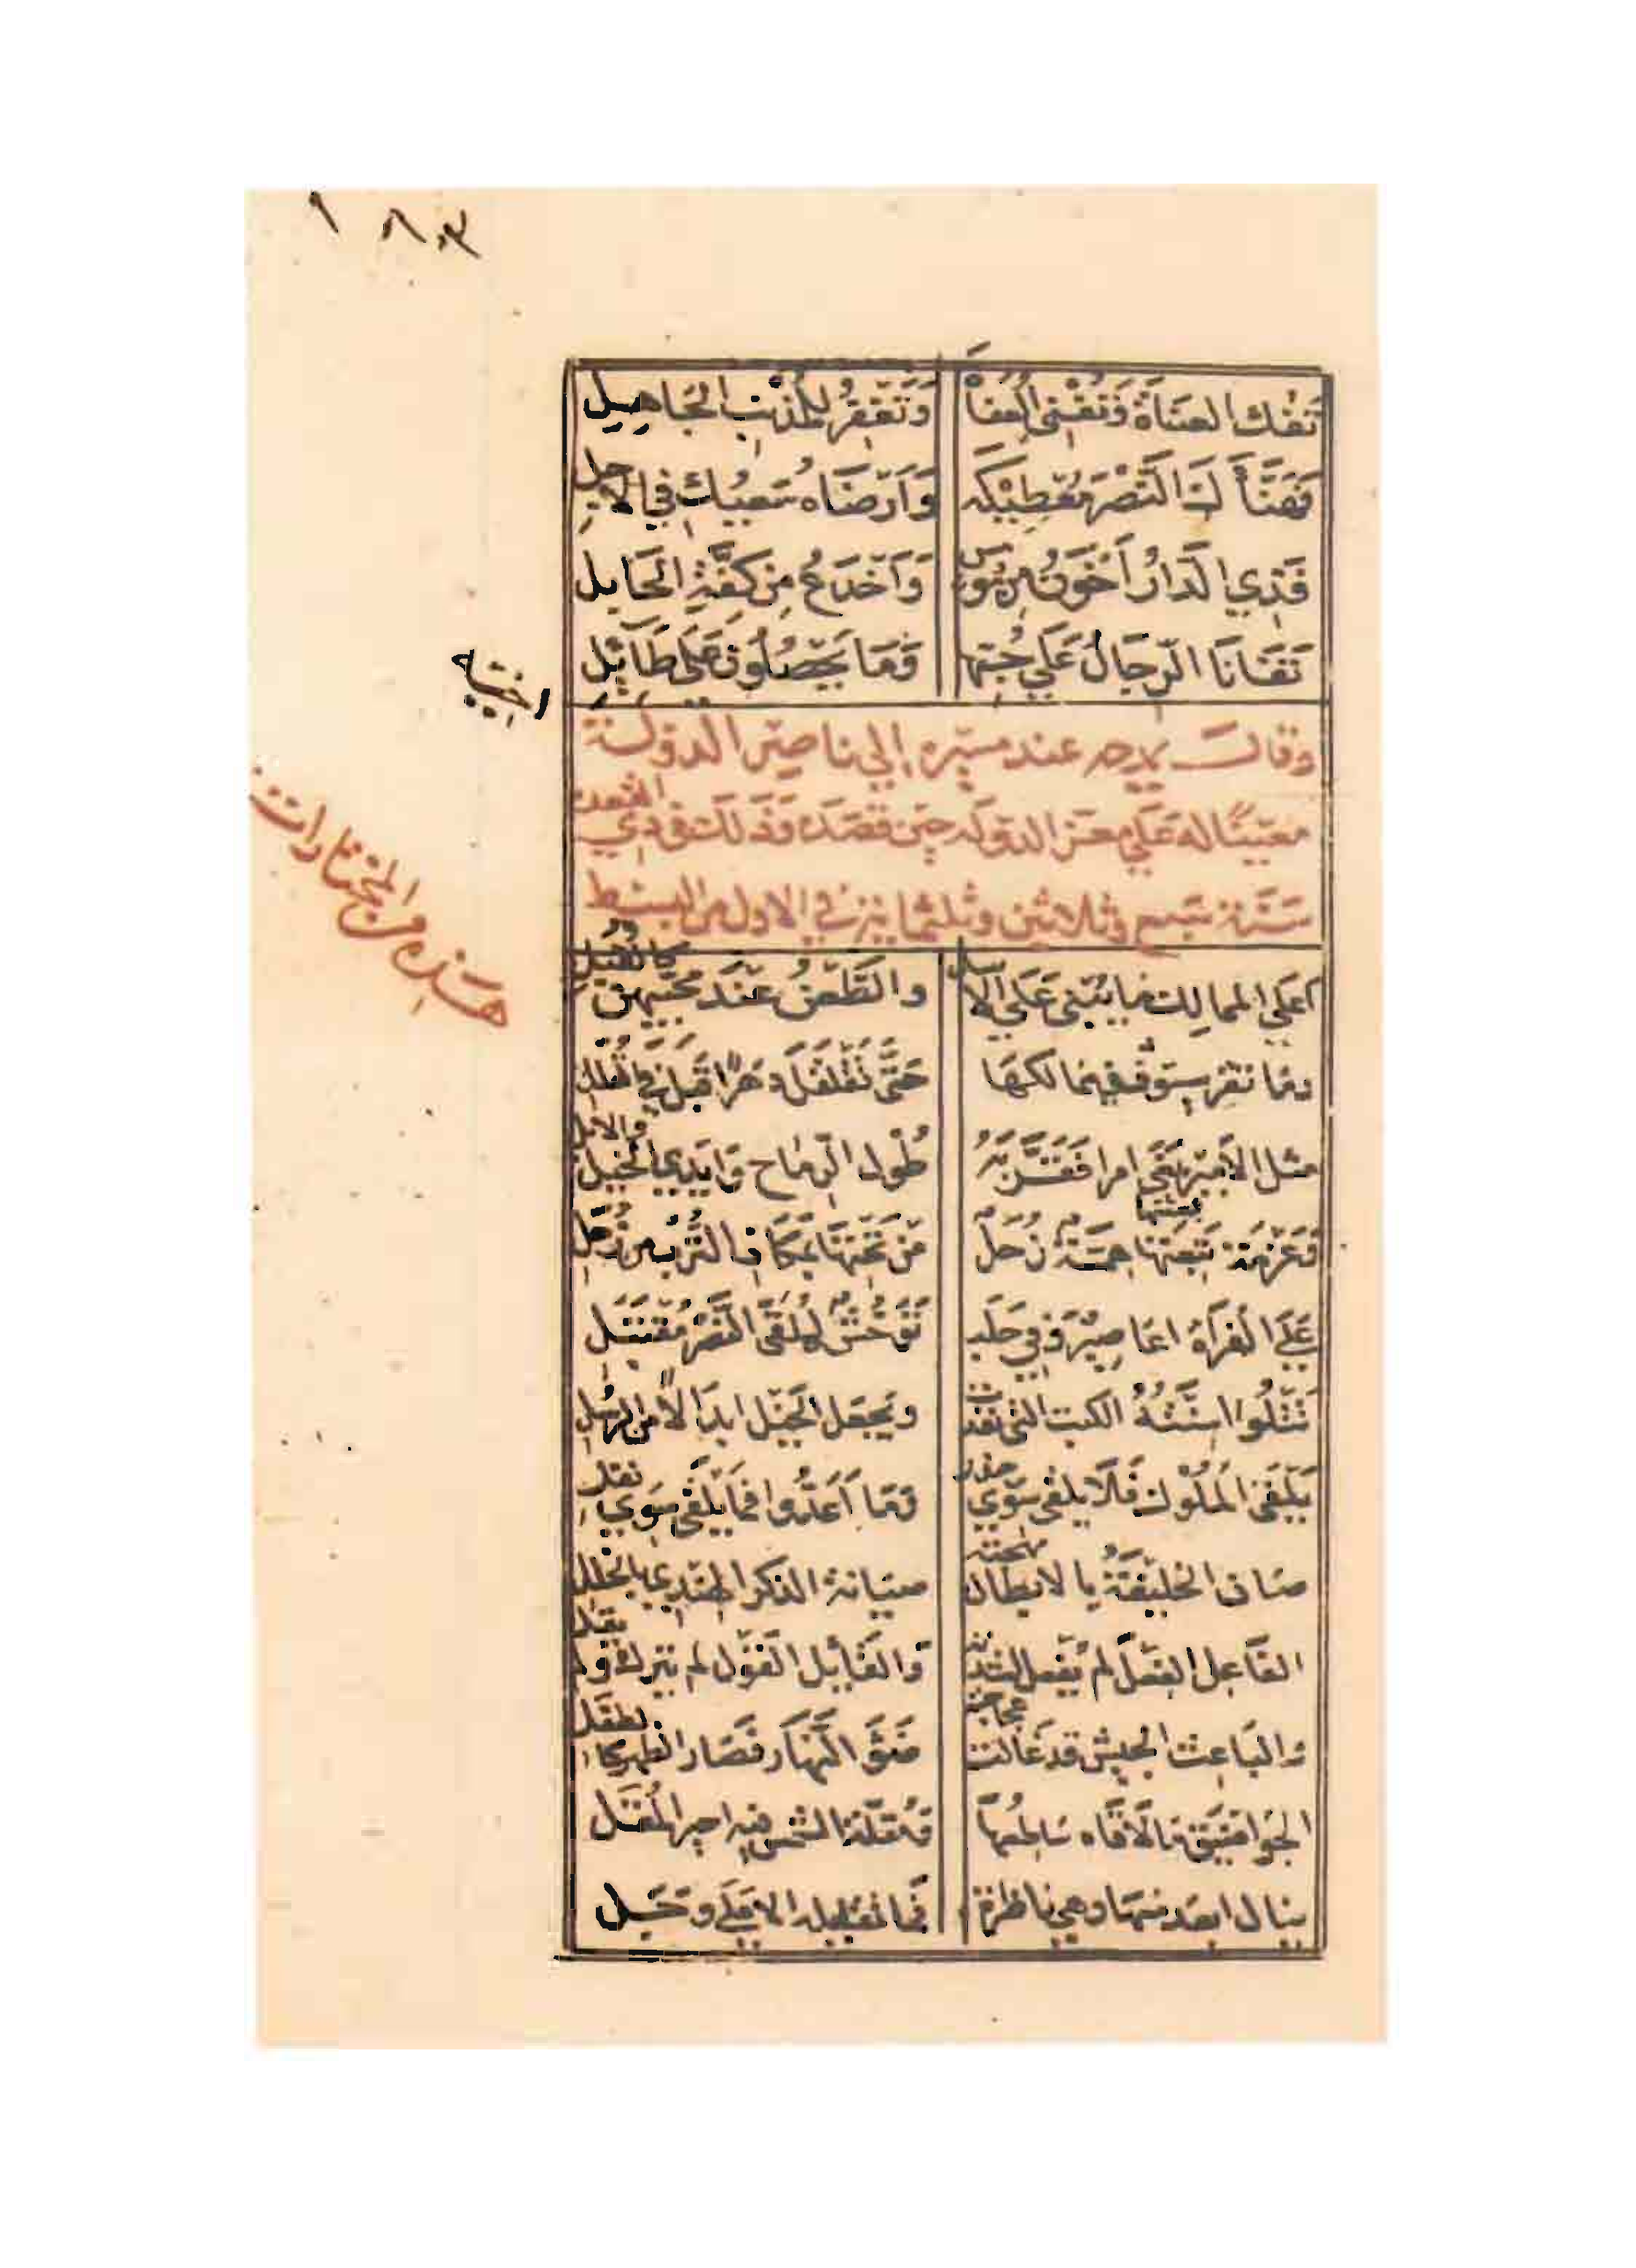 ١٨٠٣
تَفُكُّ العُنَاةَ وَتُغْنِي العُفَاةْ وَتَغْفِرُ لِلمُذْنِبِ الجَاهِلِ
فَهَنَّأَكَ النَّصْرَ مُعْطِيكَه وَأَرْضَاهُ سَعْيُكَ فِي الآجِلِ
فَذِي الدَّارُ أَخْوَنُ مِن مُومِسٍ وَأَخْدَعُ مِن كِفَّةِ الحَابِلِ
تَفَانَا الرِّجَالُ عَلَى حُبِّهَا وَمَا يَحْصُلُونَ عَلَى طَائِلِ
وقال يمدحه عند مسيره إلى ناصر الدولة
معينًا له على معز الدولة حين قصده وذلك في ذي القعدة
سنة سبع وثلاثين وثلثماية في الاول من البسيط
هذه من المختارات
أعلى الممالك ما يبنى على الأسل والطعن عند محبيهن كالقبل
وما تقر سيوف في ممالكها حتى تقلقل دهرا قبل في القلل
مثل الأمير بغى امرا فقربه طول الرماح وايدي الخيل والابل
وعزمة بعثتها همة زحل من تحتها بمكان الترب من زحل
على الفرات اعاصير وفي حلب توحش لملقى النصر مقتبل
تتلوا اسنته الكتب التي نفذت ويجعل الخيل ابدالا من الرسل
يلقى الملوك فلا يلقى سوى جزر وما أعدوا فما يلقى سوى نفل
صان الخليفة بالابطال مهجته صيانة الذكر الهندي بالخلل
الفاعل الفعل لم يفعل لشدته والقايل القول لم يترك ولم يقل
والباعث الجيش قد غالت عجاجته ضوء النهار فصار الظهر كالطفل
الجو اضيق ما لاقاه ساطعها ومقلة الشمس فيه احير المقل
ينال ابعد منها وهي ناظرة فما تقابله الا على وجل